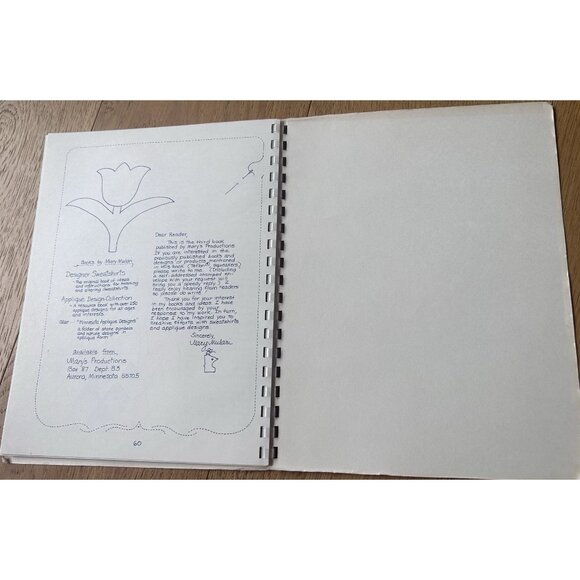 Books by Mary Mulari
Designer Sweatshirts
- The original book of ideas
and instructions for trimming
and altering sweatshirts
Applique Design Collection
- A resource book with over 250
applique designs for all ages
and interests.
Also - "Minnesota Applique Designs"
A folder of state symbols
and nature designs in
applique form
available from:
Mary's Productions
Box 87 Dept. B3
Aurora, Minnesota 55705
Dear Reader,
This is the third book
published by Mary's Productions
If you are interested in the
previously published books and
designs or products mentioned
in this book (Teflon, squeakers)
please write to me. (Including
a self-addressed stamped en-
velope with your request will
bring you a speedy reply.) I
really enjoy hearing from readers
so please do write.
Thank you for your interest
in my books and ideas. I have
been encouraged by your
response to my work. In turn,
I hope I have inspired you to
creative efforts with sweatshirts
and applique designs
Sincerely,
Mary Mulari
60